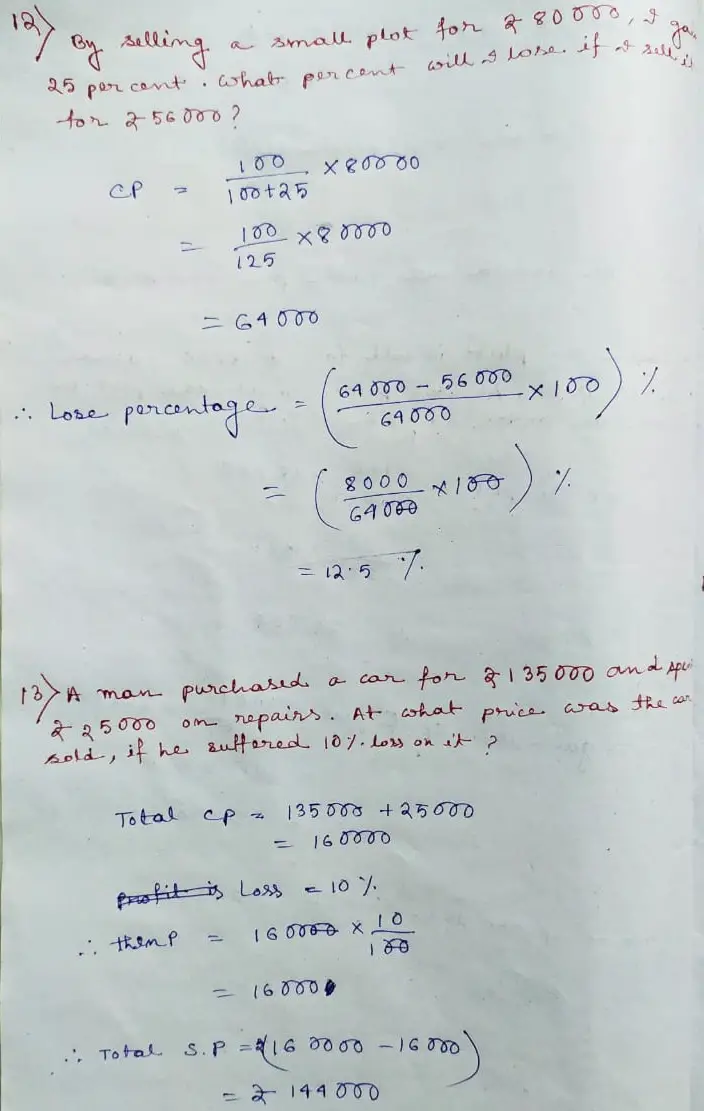 12) By selling a small plot for ₹ 80000, I ga
25 percent. what percent will I lose if I sell it
for ₹ 56000?
CP = 100/100+25 × 80000
= 100/125 × 80000
= 64000
∴ Lose percentage = (64000 - 56000/64000 × 100) %
= (8000/64000 × 100) %
= 12.5 %
13) A man purchased a car for ₹ 135000 and spe
₹ 25000 on repairs. At what price was the car
sold, if he suffered 10% loss on it ?
Total CP = 135000 + 25000
= 160000
profit is Loss = 10 %
∴ then P = 160000 × 10/100
= 16000
∴ Total S.P = ₹(160000 - 16000)
= ₹ 144000